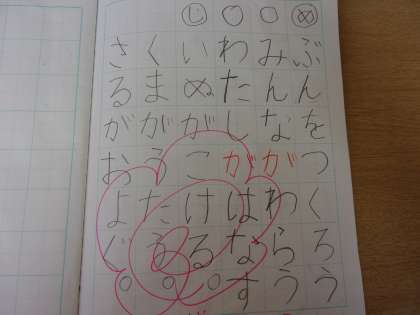 め ぶんをつくろう
みんながわらう
わたしがはなす
じ いぬがこける。
くまがうたう。
さるがおよぐ。